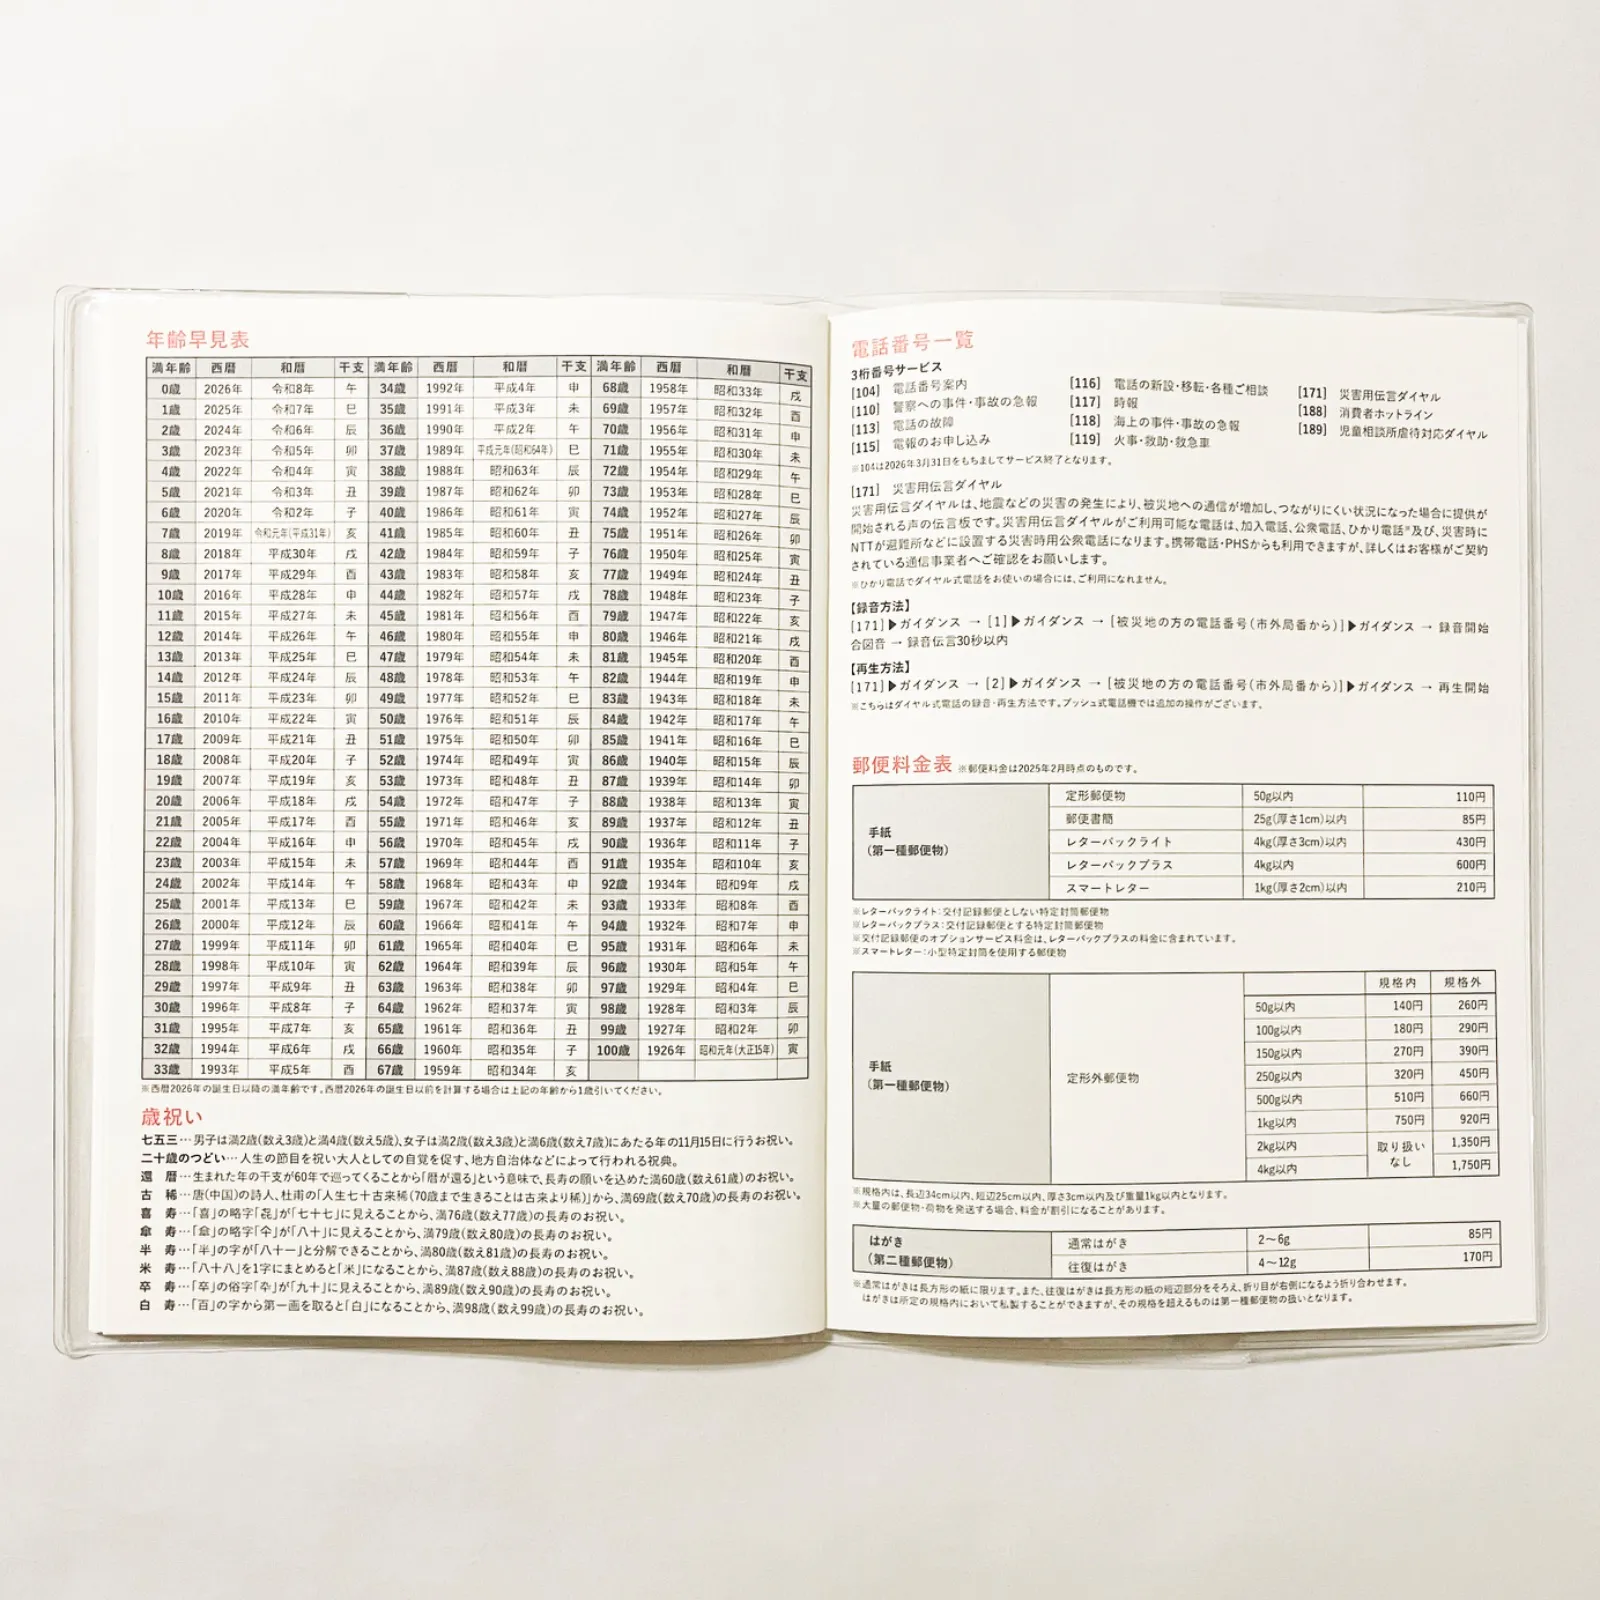 年齢早見表
満年齢 西暦 和暦 干支 満年齢 西暦 和暦 干支 満年齢 西暦 和暦 干支
0歳 2026年 令和8年 午 34歳 1992年 平成4年 申 68歳 1958年 昭和33年 戌
1歳 2025年 令和7年 巳 35歳 1991年 平成3年 未 69歳 1957年 昭和32年 酉
2歳 2024年 令和6年 辰 36歳 1990年 平成2年 午 70歳 1956年 昭和31年 申
3歳 2023年 令和5年 卯 37歳 1989年 平成元年(昭和64年) 巳 71歳 1955年 昭和30年 未
4歳 2022年 令和4年 寅 38歳 1988年 昭和63年 辰 72歳 1954年 昭和29年 午
5歳 2021年 令和3年 丑 39歳 1987年 昭和62年 卯 73歳 1953年 昭和28年 巳
6歳 2020年 令和2年 子 40歳 1986年 昭和61年 寅 74歳 1952年 昭和27年 辰
7歳 2019年 令和元年(平成31年) 亥 41歳 1985年 昭和60年 丑 75歳 1951年 昭和26年 卯
8歳 2018年 平成30年 戌 42歳 1984年 昭和59年 子 76歳 1950年 昭和25年 寅
9歳 2017年 平成29年 酉 43歳 1983年 昭和58年 亥 77歳 1949年 昭和24年 丑
10歳 2016年 平成28年 申 44歳 1982年 昭和57年 戌 78歳 1948年 昭和23年 子
11歳 2015年 平成27年 未 45歳 1981年 昭和56年 酉 79歳 1947年 昭和22年 亥
12歳 2014年 平成26年 午 46歳 1980年 昭和55年 申 80歳 1946年 昭和21年 戌
13歳 2013年 平成25年 巳 47歳 1979年 昭和54年 未 81歳 1945年 昭和20年 酉
14歳 2012年 平成24年 辰 48歳 1978年 昭和53年 午 82歳 1944年 昭和19年 申
15歳 2011年 平成23年 卯 49歳 1977年 昭和52年 巳 83歳 1943年 昭和18年 未
16歳 2010年 平成22年 寅 50歳 1976年 昭和51年 辰 84歳 1942年 昭和17年 午
17歳 2009年 平成21年 丑 51歳 1975年 昭和50年 卯 85歳 1941年 昭和16年 巳
18歳 2008年 平成20年 子 52歳 1974年 昭和49年 寅 86歳 1940年 昭和15年 辰
19歳 2007年 平成19年 亥 53歳 1973年 昭和48年 丑 87歳 1939年 昭和14年 卯
20歳 2006年 平成18年 戌 54歳 1972年 昭和47年 子 88歳 1938年 昭和13年 寅
21歳 2005年 平成17年 酉 55歳 1971年 昭和46年 亥 89歳 1937年 昭和12年 丑
22歳 2004年 平成16年 申 56歳 1970年 昭和45年 戌 90歳 1936年 昭和11年 子
23歳 2003年 平成15年 未 57歳 1969年 昭和44年 酉 91歳 1935年 昭和10年 亥
24歳 2002年 平成14年 午 58歳 1968年 昭和43年 申 92歳 1934年 昭和9年 戌
25歳 2001年 平成13年 巳 59歳 1967年 昭和42年 未 93歳 1933年 昭和8年 酉
26歳 2000年 平成12年 辰 60歳 1966年 昭和41年 午 94歳 1932年 昭和7年 申
27歳 1999年 平成11年 卯 61歳 1965年 昭和40年 巳 95歳 1931年 昭和6年 未
28歳 1998年 平成10年 寅 62歳 1964年 昭和39年 辰 96歳 1930年 昭和5年 午
29歳 1997年 平成9年 丑 63歳 1963年 昭和38年 卯 97歳 1929年 昭和4年 巳
30歳 1996年 平成8年 子 64歳 1962年 昭和37年 寅 98歳 1928年 昭和3年 辰
31歳 1995年 平成7年 亥 65歳 1961年 昭和36年 丑 99歳 1927年 昭和2年 卯
32歳 1994年 平成6年 戌 66歳 1960年 昭和35年 子 100歳 1926年 昭和元年(大正15年) 寅
33歳 1993年 平成5年 酉 67歳 1959年 昭和34年 亥
※西暦2026年の誕生日以降の満年齢です。西暦2026年の誕生日以前を計算する場合は上記の年齢から1歳引いてください。
歳祝い
七五三…男子は満2歳(数え3歳)と満4歳(数え5歳)、女子は満2歳(数え3歳)と満6歳(数え7歳)にあたる年の11月15日に行うお祝い。
二十歳のつどい…人生の節目を祝い大人としての自覚を促す、地方自治体などによって行われる祝典。
還 暦…生まれた年の干支が60年で巡ってくることから「暦が還る」という意味で、長寿の願いを込めた満60歳(数え61歳)のお祝い。
古 稀…唐(中国)の詩人、杜甫の「人生七十古来稀(70歳まで生きることは古来より稀)」から、満69歳(数え70歳)の長寿のお祝い。
喜 寿…「喜」の略字「㐂」が「七十七」に見えることから、満76歳(数え77歳)の長寿のお祝い。
傘 寿…「傘」の略字「仐」が「八十」に見えることから、満79歳(数え80歳)の長寿のお祝い。
半 寿…「半」の字が「八十一」と分解できることから、満80歳(数え81歳)の長寿のお祝い。
米 寿…「八十八」を1字にまとめると「米」になることから、満87歳(数え88歳)の長寿のお祝い。
卒 寿…「卒」の俗字「卆」が「九十」に見えることから、満89歳(数え90歳)の長寿のお祝い。
白 寿…「百」の字から第一画を取ると「白」になることから、満98歳(数え99歳)の長寿のお祝い。
電話番号一覧
3桁番号サービス
[104] 電話番号案内
[110] 警察への事件・事故の急報
[113] 電話の故障
[115] 電報のお申し込み
[116] 電話の新設・移転・各種ご相談
[117] 時報
[118] 海上の事件・事故の急報
[119] 火事・救助・救急車
[171] 災害用伝言ダイヤル
[188] 消費者ホットライン
[189] 児童相談所虐待対応ダイヤル
※104は2026年3月31日をもちましてサービス終了となります。
[171] 災害用伝言ダイヤル
災害用伝言ダイヤルは、地震などの災害の発生により、被災地への通信が増加し、つながりにくい状況になった場合に提供が
開始される声の伝言板です。災害用伝言ダイヤルがご利用可能な電話は、加入電話、公衆電話、ひかり電話※及び、災害時に
NTTが避難所などに設置する災害時用公衆電話になります。携帯電話・PHSからも利用できますが、詳しくはお客様がご契約
されている通信事業者へご確認をお願いします。
※ひかり電話でダイヤル式電話をお使いの場合には、ご利用になれません。
【録音方法】
[171]▶ガイダンス → [1]▶ガイダンス → [被災地の方の電話番号(市外局番から)]▶ガイダンス → 録音開始
合図音 → 録音伝言30秒以内
【再生方法】
[171]▶ガイダンス → [2]▶ガイダンス → [被災地の方の電話番号(市外局番から)]▶ガイダンス → 再生開始
※こちらはダイヤル式電話の録音・再生方法です。プッシュ式電話機では追加の操作がございます。
郵便料金表 ※郵便料金は2025年2月時点のものです。
手紙
(第一種郵便物)
定形郵便物 50g以内 110円
郵便書簡 25g(厚さ1cm)以内 85円
レターパックライト 4kg(厚さ3cm)以内 430円
レターパックプラス 4kg以内 600円
スマートレター 1kg(厚さ2cm)以内 210円
※レターパックライト:交付記録郵便としない特定封筒郵便物
※レターパックプラス:交付記録郵便とする特定封筒郵便物
※交付記録郵便のオプションサービス料金は、レターパックプラスの料金に含まれています。
※スマートレター:小型特定封筒を使用する郵便物
手紙
(第一種郵便物)
定形外郵便物
規格内 規格外
50g以内 140円 260円
100g以内 180円 290円
150g以内 270円 390円
250g以内 320円 450円
500g以内 510円 660円
1kg以内 750円 920円
2kg以内 取り扱い 1,350円
4kg以内 なし 1,750円
※規格内は、長辺34cm以内、短辺25cm以内、厚さ3cm以内及び重量1kg以内となります。
※大量の郵便物・荷物を発送する場合、料金が割引になることがあります。
はがき
(第二種郵便物)
通常はがき 2〜6g 85円
往復はがき 4〜12g 170円
※通常はがきは長方形の紙に限ります。また、往復はがきは長方形の紙の短辺部分をそろえ、折り目が右側になるよう折り合わせます。
はがきは所定の規格内において私製することができますが、その規格を超えるものは第一種郵便物の扱いとなります。